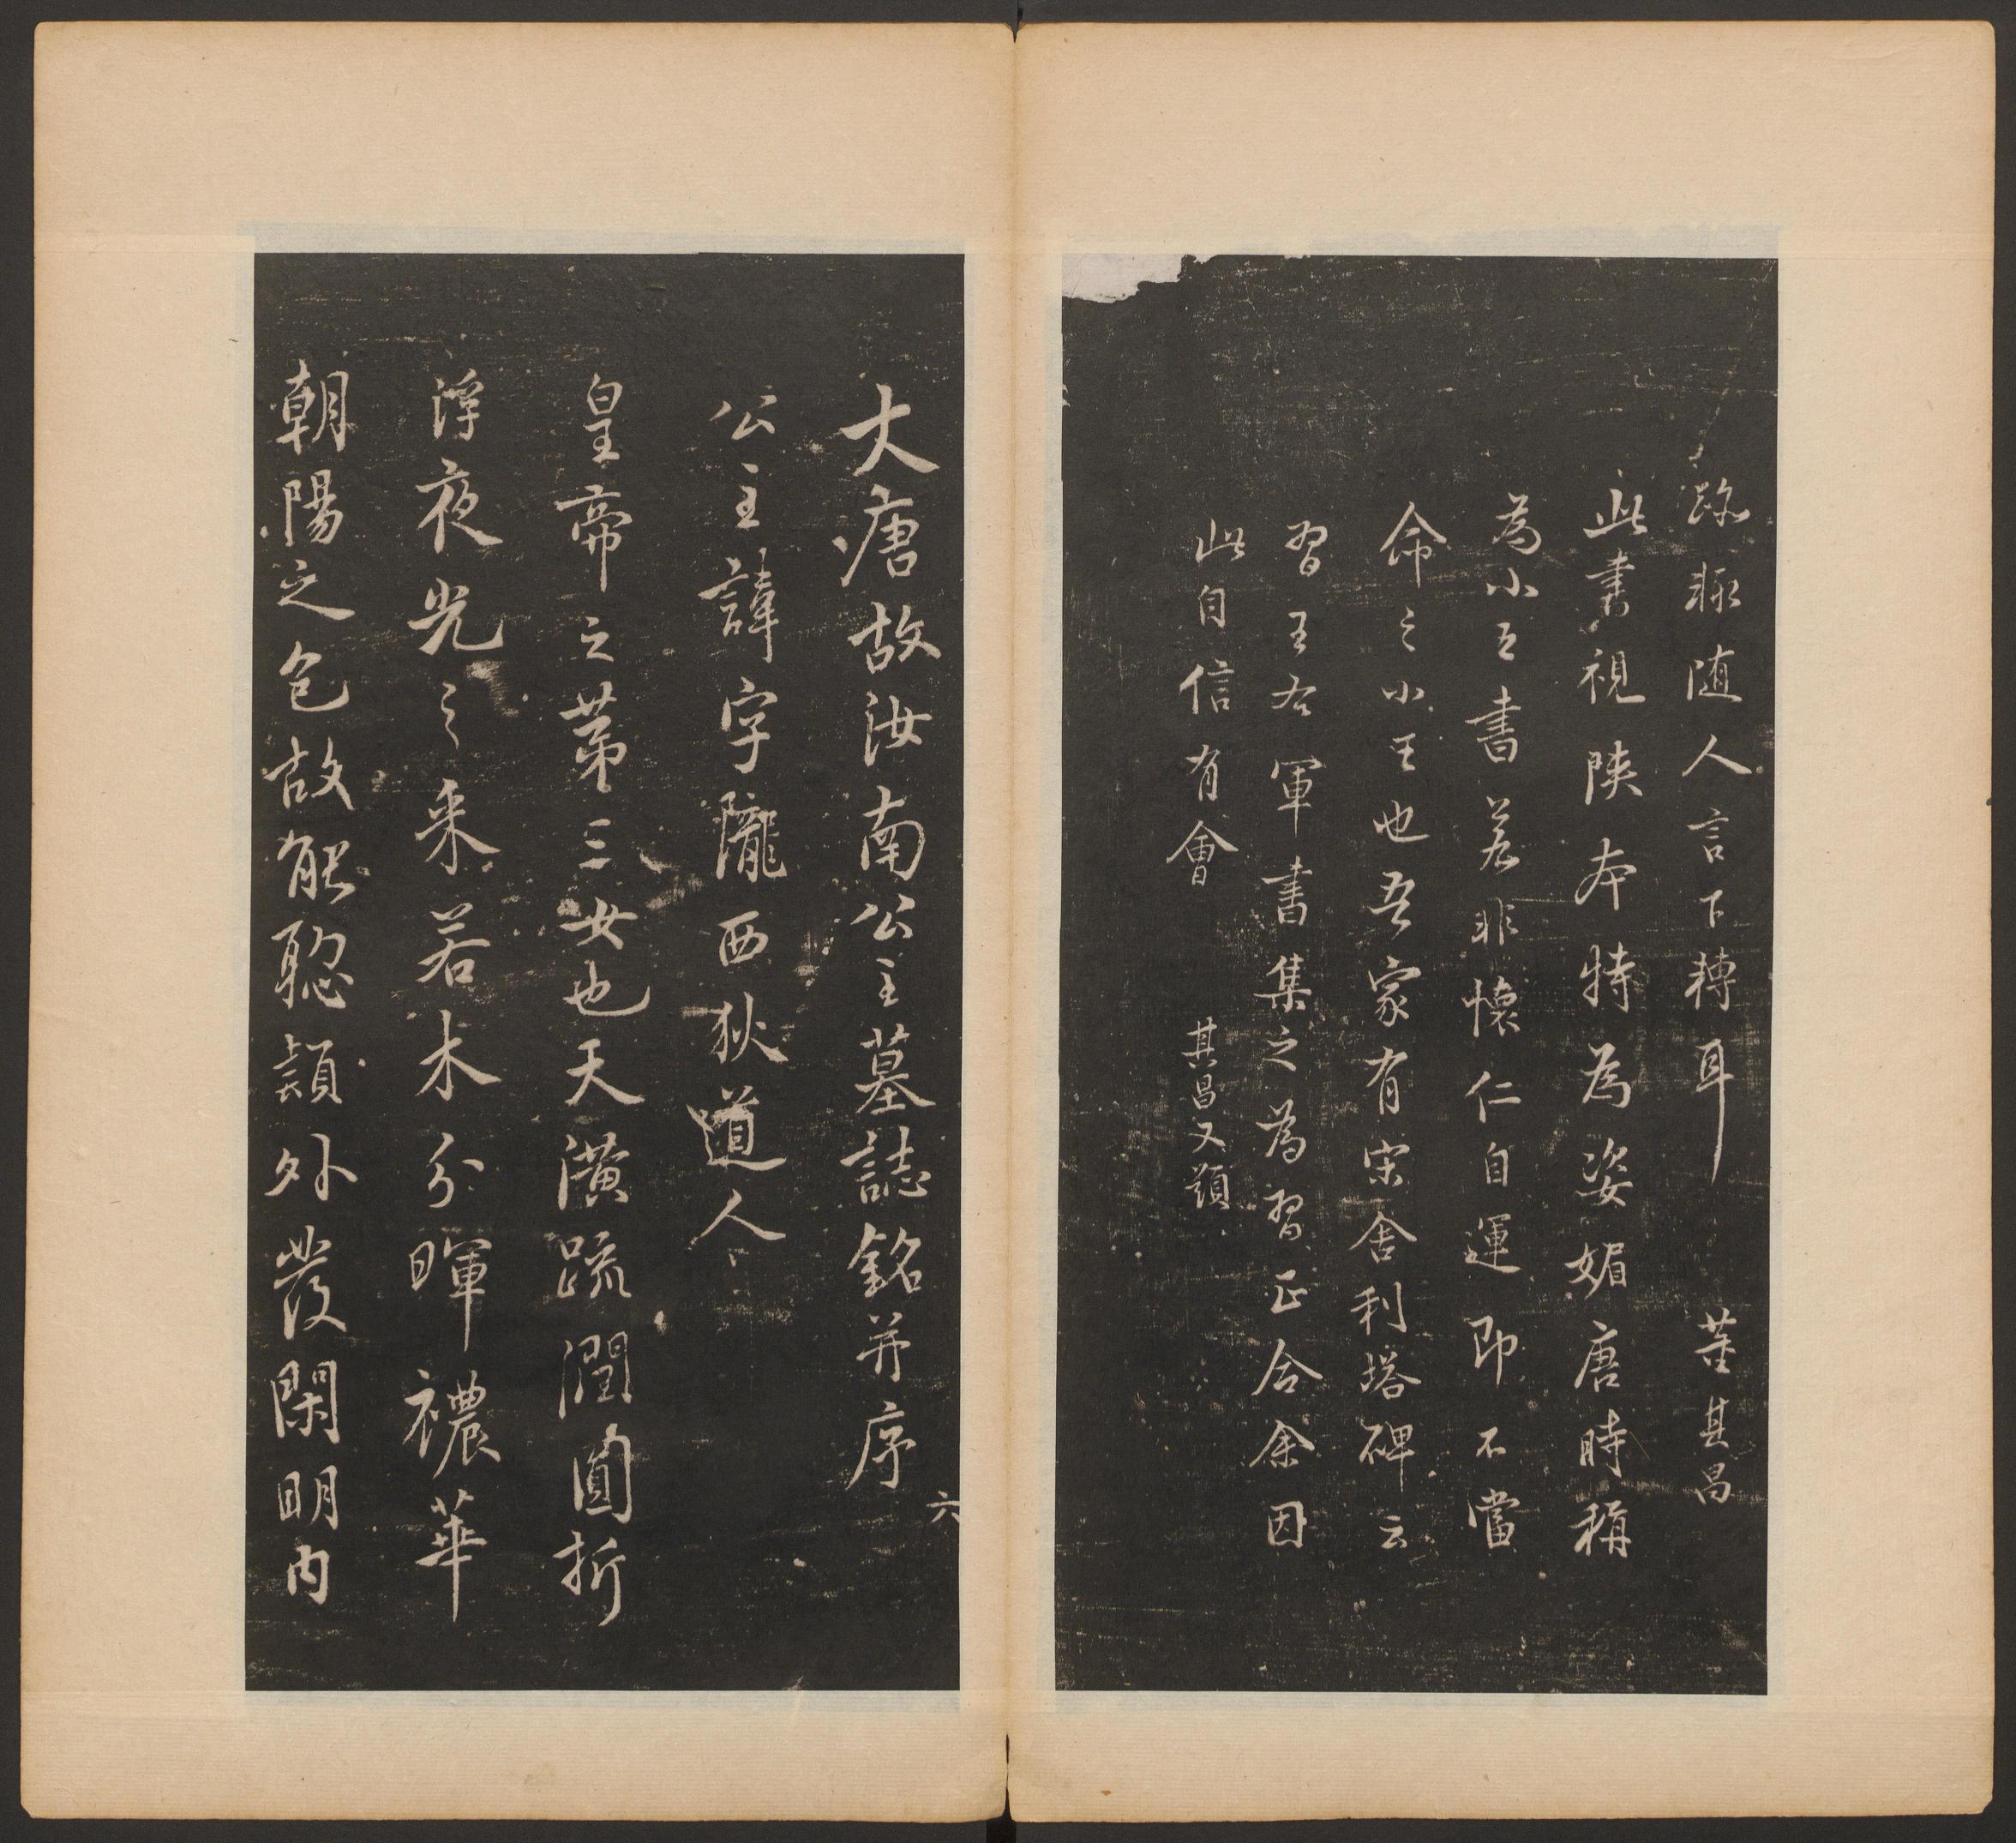 跡輒随人言下轉耳 董其昌
此書視陕本特為姿媚唐時稱
為小王書若非懷仁自運即不當
命之小王也吾家有宋舍利塔碑云
習王右軍書集之為習正合余因
此自信有會 其昌又題
大唐故汝南公主墓誌銘并序
六
公主諱字隴西狄道人
皇帝之苐三女也天潢疏潤圓折
浮夜光之采若木分暉襛華
朝陽之色故能聡穎外發閑明内